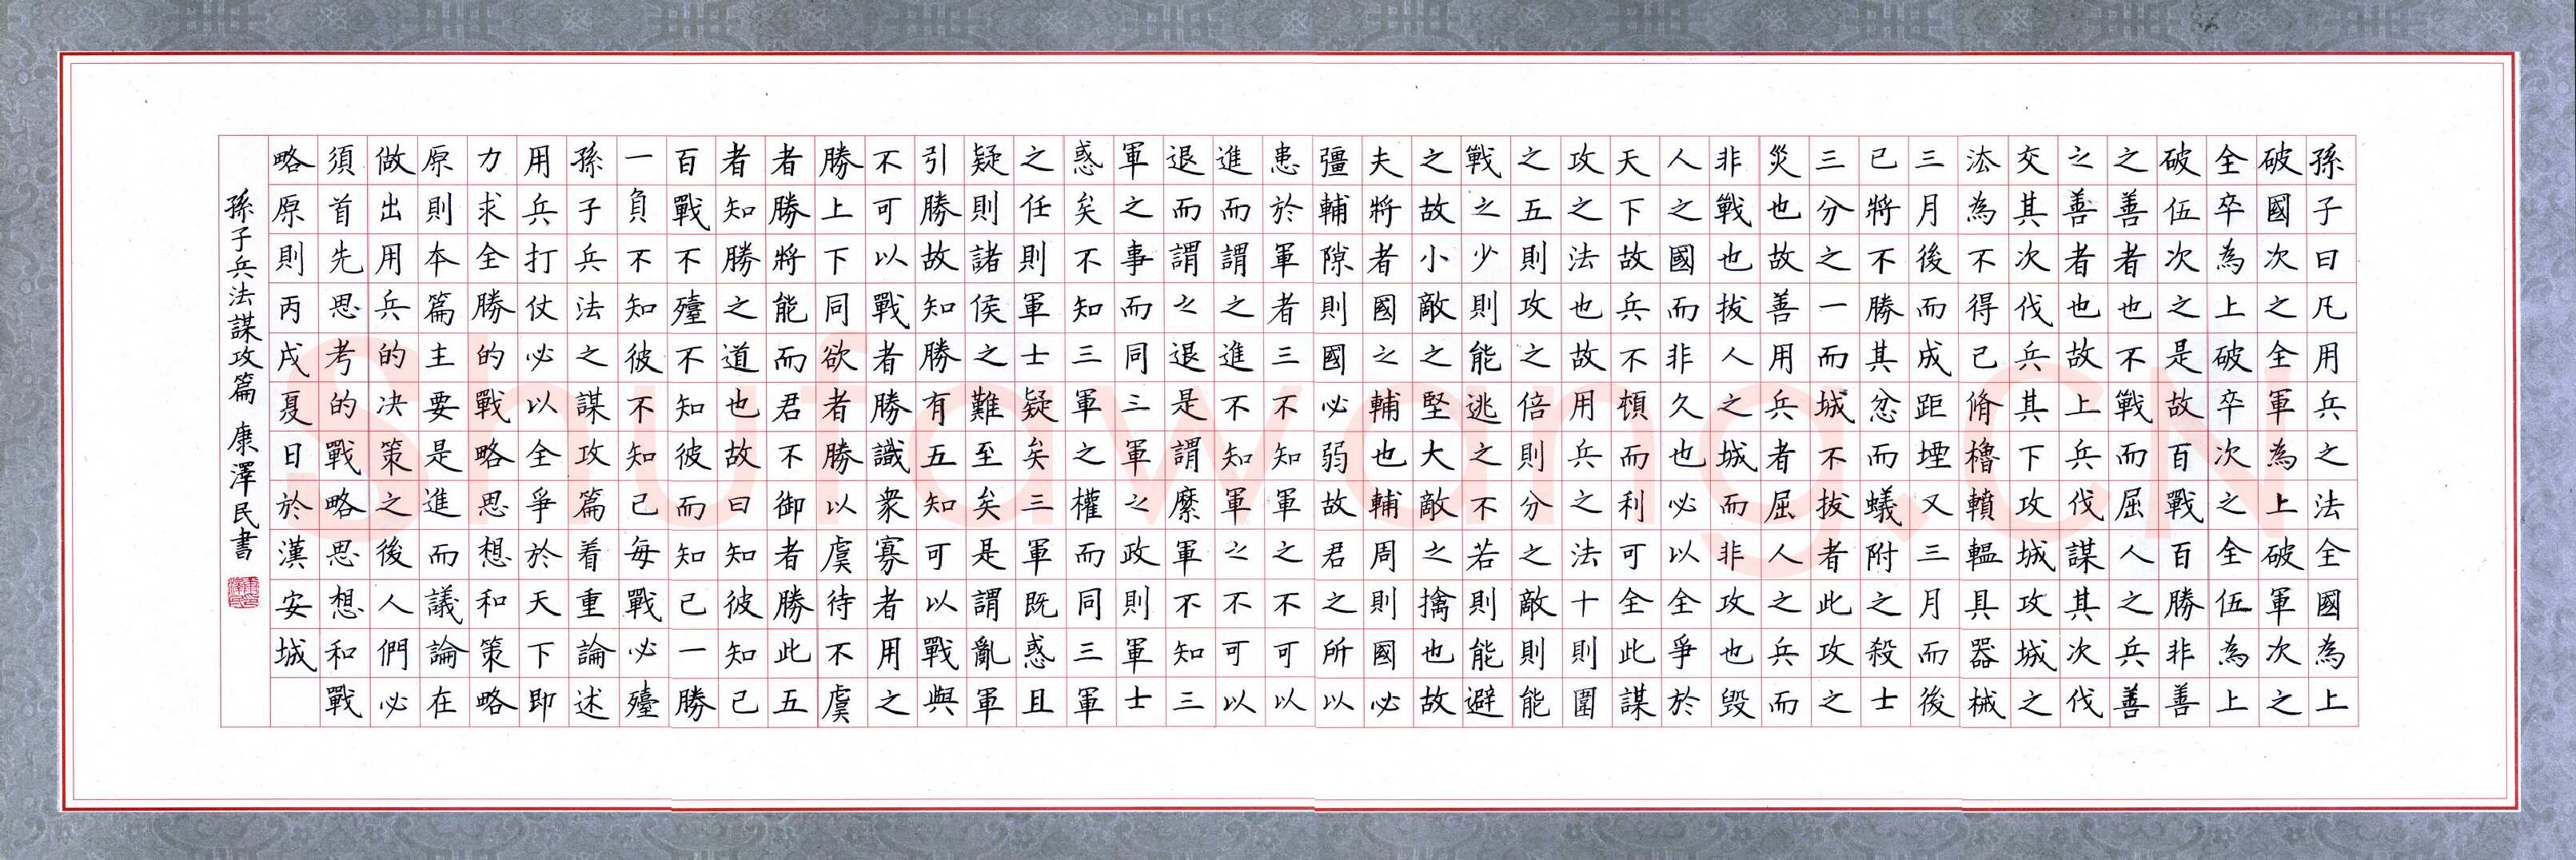 孫子曰凡用兵之法全國為上
破國次之全軍為上破軍次之
全卒為上破卒次之全伍為上
破伍次之是故百戰百勝非善
之善者也不戰而屈人之兵善
之善者也故上兵伐謀其次伐
交其次伐兵其下攻城攻城之
法為不得已脩櫓轒轀具器械
三月後而成距堙又三月而後
已將不勝其忿而蟻附之殺士
三分之一而城不拔者此攻之
災也故善用兵者屈人之兵而
非戰也拔人之城而非攻也毀
人之國而非久也必以全爭於
天下故兵不頓而利可全此謀
攻之法也故用兵之法十則圍
之五則攻之倍則分之敵則能
戰之少則能逃之不若則能避
之故小敵之堅大敵之擒也故
夫將者國之輔也輔周則國必
彊輔隙則國必弱故君之所以
患於軍者三不知軍之不可以
進而謂之進不知軍之不可以
退而謂之退是謂縻軍不知三
軍之事而同三軍之政則軍士
惑矣不知三軍之權而同三軍
之任則軍士疑矣三軍既惑且
疑則諸侯之難至矣是謂亂軍
引勝故知勝有五知可以戰與
不可以戰者勝識衆寡者用之
勝上下同欲者勝以虞待不虞
者勝將能而君不御者勝此五
者知勝之道也故曰知彼知己
百戰不殪不知彼而知己一勝
一負不知彼不知己每戰必殪
孫子兵法之謀攻篇着重論述
用兵打仗必以全爭於天下即
力求全勝的戰略思想和策略
原則本篇主要是進而議論在
做出用兵的決策之後人們必
須首先思考的戰略思想和戰
略原則丙戌夏日於漢安城
孫子兵法謀攻篇 康澤民書
Shufawang.CN